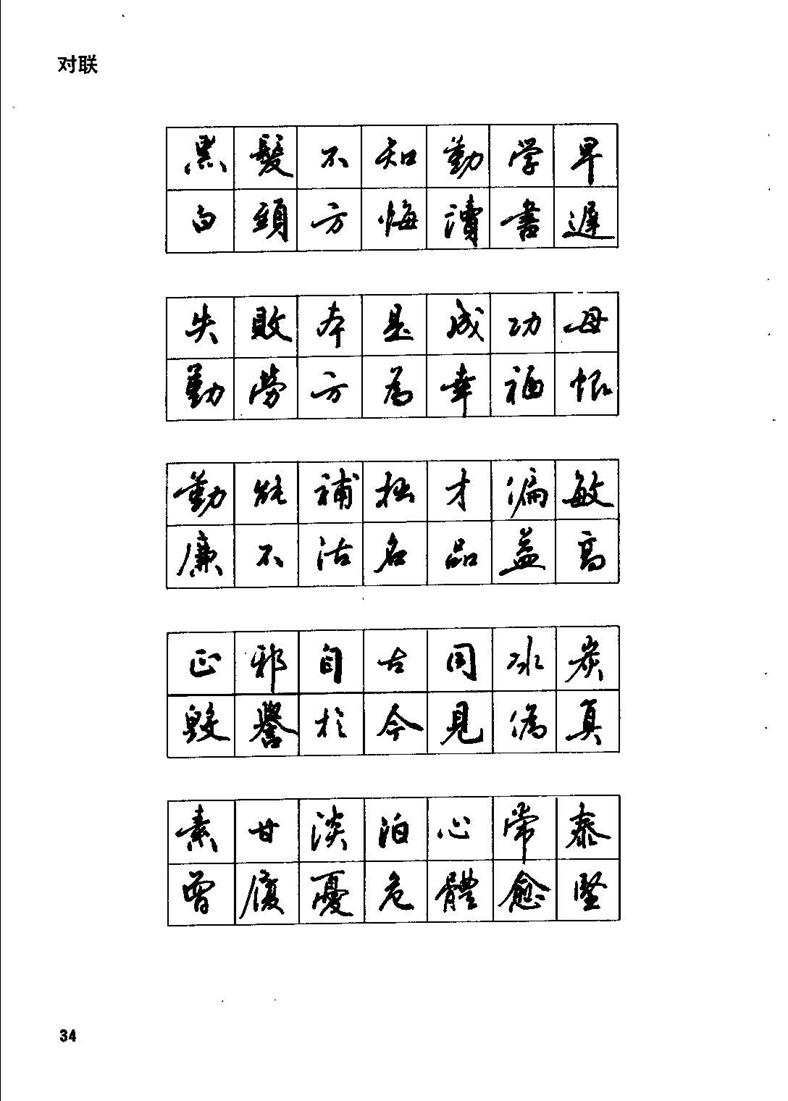 对联
黑髮不知勤学早
白頭方悔讀書遲
失敗本是成功母
勤勞方為幸福根
勤能補拙才偏敏
廉不沽名品益高
正邪自古同冰炭
毀譽於今見偽真
素甘淡泊心常泰
曾履憂危體愈堅
34